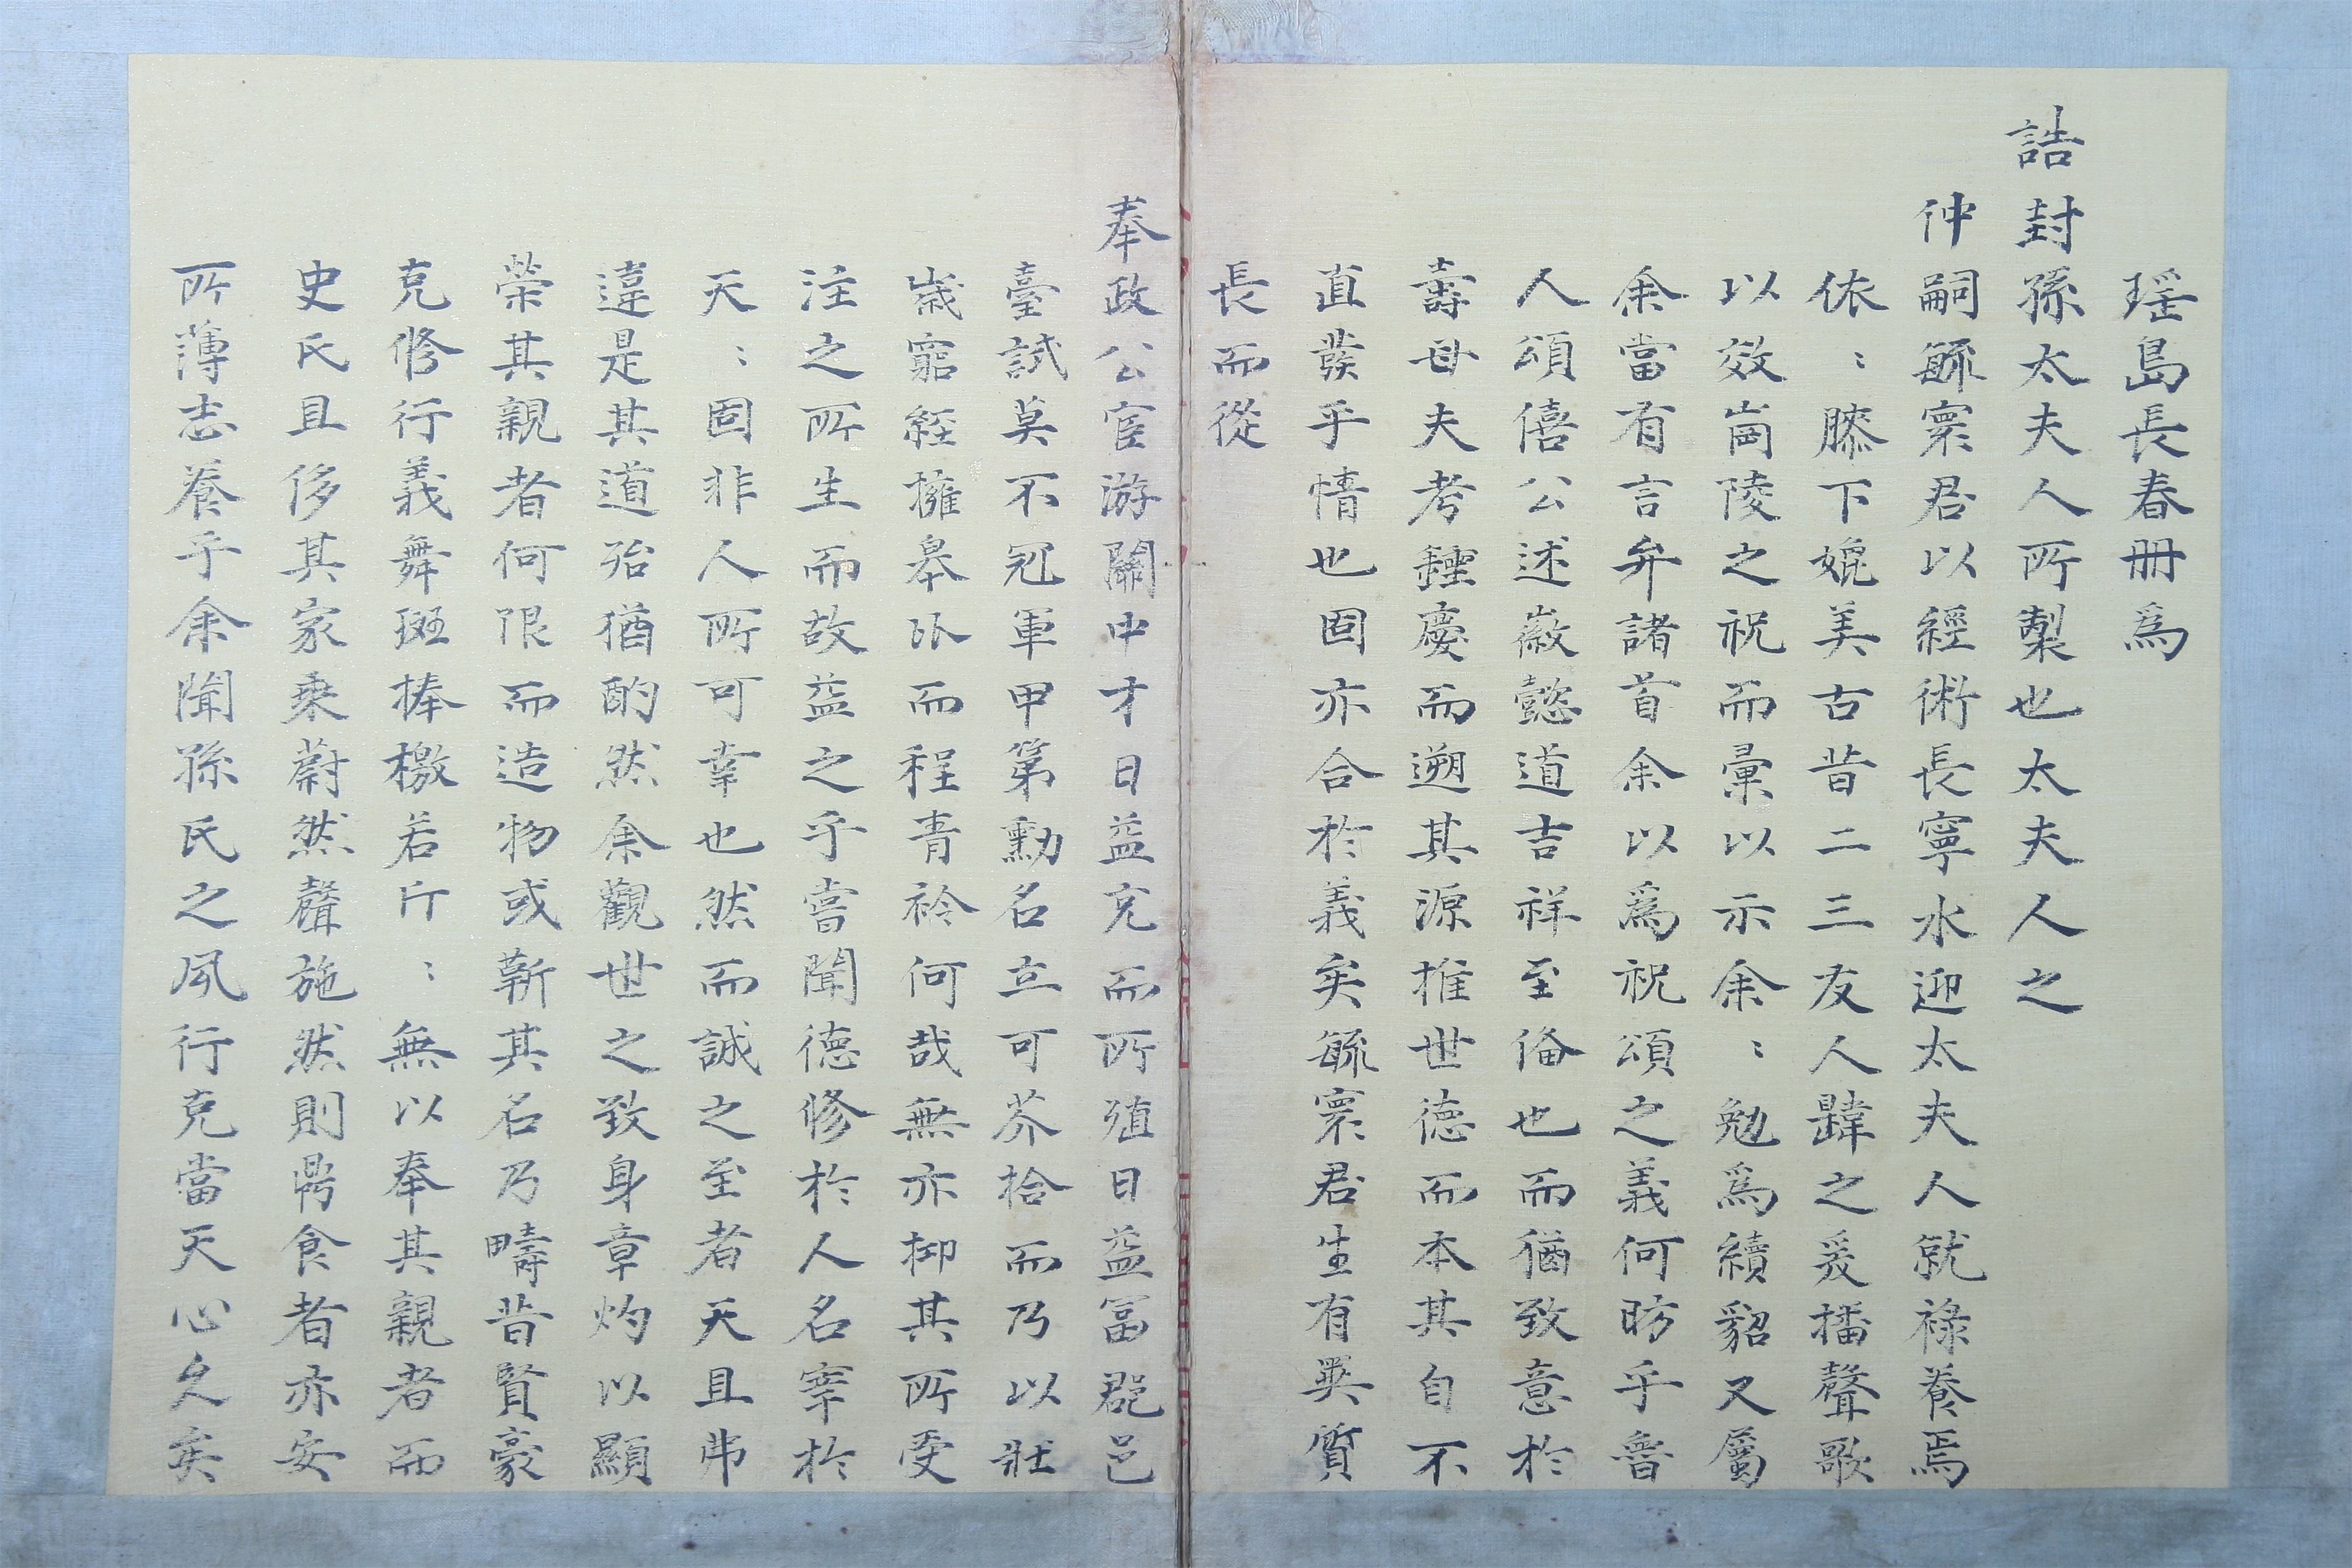 瑶島長春冊爲
誥封孫太夫人所製也太夫人之
仲嗣毓寰君以經術長寧水迎太夫人就祿養焉
依〻膝下媲美古昔二三友人韙之爰播聲歌
以效崗陵之祝而彙以示余〻勉爲續貂又屬
余當有言弁諸首余以爲祝頌之義何昉乎魯
人頌僖公述徽懿道吉祥至俻也而猶致意於
壽母夫考鍾慶而遡其源推世德而本其自不
直發乎情也固亦合於義矣毓寰君生有異質
長而從
奉政公宦游關中才日益充而所殖日益富郡邑
臺試莫不冠軍甲第勳名立可芥拾而乃以壯
嵗窮經擁皋比而程青衿何哉無亦抑其所受
注之所生而故益之乎嘗聞德修於人名宰於
天〻固非人所可幸也然而誠之至者天且弗
違是其道殆猶酌然余觀世之致身章灼以顯
榮其親者何限而造物或靳其名乃疇昔賢豪
克修行義舞斑捧檄若斤〻無以奉其親者而
史氏且侈其家乘蔚然聲施然則鼎食者亦安
所薄志養乎余聞孫氏之夙行克當天心久矣